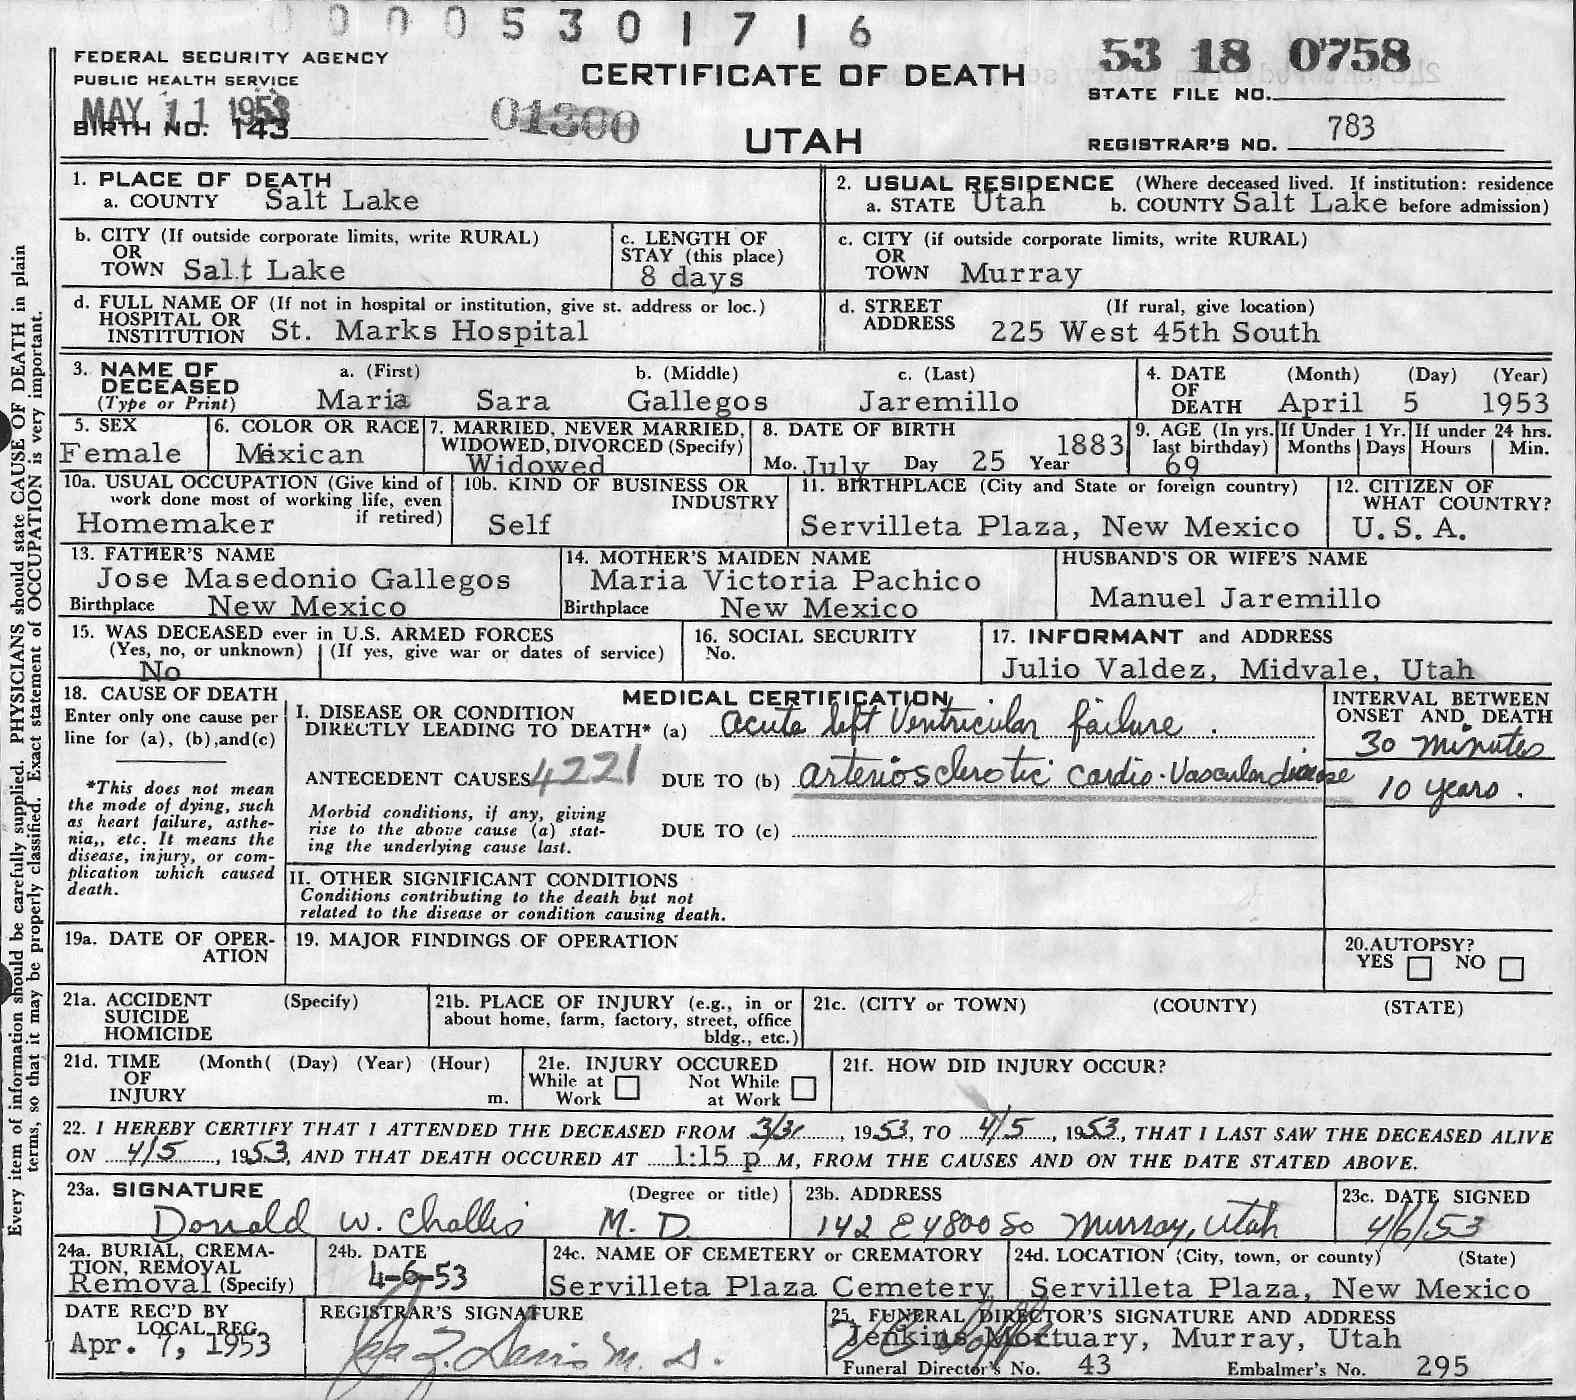 0 0 0 0 5 3 0 1 7 1 6
FEDERAL SECURITY AGENCY
PUBLIC HEALTH SERVICE
MAY 11 1953
BIRTH NO. 143
01300
CERTIFICATE OF DEATH
UTAH
53 18 0758
STATE FILE NO.
REGISTRAR'S NO. 783
1. PLACE OF DEATH
a. COUNTY Salt Lake
2. USUAL RESIDENCE (Where deceased lived. If institution: residence
a. STATE Utah b. COUNTY Salt Lake before admission)
b. CITY (If outside corporate limits, write RURAL)
OR
TOWN Salt Lake
c. LENGTH OF
STAY (this place)
8 days
c. CITY (if outside corporate limits, write RURAL)
OR
TOWN Murray
d. FULL NAME OF (If not in hospital or institution, give st. address or loc.)
HOSPITAL OR
INSTITUTION St. Marks Hospital
d. STREET (If rural, give location)
ADDRESS 225 West 45th South
3. NAME OF a. (First) b. (Middle) c. (Last)
DECEASED
(Type or Print) Maria Sara Gallegos Jaremillo
4. DATE (Month) (Day) (Year)
OF
DEATH April 5 1953
5. SEX
Female
6. COLOR OR RACE
Mexican
7. MARRIED, NEVER MARRIED,
WIDOWED, DIVORCED (Specify)
Widowed
8. DATE OF BIRTH
Mo. July Day 25 Year 1883
9. AGE (In yrs.
last birthday)
69
If Under 1 Yr.
Months Days
If under 24 hrs.
Hours Min.
10a. USUAL OCCUPATION (Give kind of
work done most of working life, even
if retired)
Homemaker
10b. KIND OF BUSINESS OR
INDUSTRY
Self
11. BIRTHPLACE (City and State or foreign country)
Servilleta Plaza, New Mexico
12. CITIZEN OF
WHAT COUNTRY?
U.S.A.
13. FATHER'S NAME
Jose Masedonio Gallegos
Birthplace New Mexico
14. MOTHER'S MAIDEN NAME
Maria Victoria Pachico
Birthplace New Mexico
HUSBAND'S OR WIFE'S NAME
Manuel Jaremillo
15. WAS DECEASED ever in U.S. ARMED FORCES
(Yes, no, or unknown) (If yes, give war or dates of service)
No
16. SOCIAL SECURITY
No.
17. INFORMANT and ADDRESS
Julio Valdez, Midvale, Utah
18. CAUSE OF DEATH
Enter only one cause per
line for (a), (b),and(c)
*This does not mean
the mode of dying, such
as heart failure, asthe-
nia,, etc. It means the
disease, injury, or com-
plication which caused
death.
MEDICAL CERTIFICATION
I. DISEASE OR CONDITION
DIRECTLY LEADING TO DEATH* (a) Acute left Ventricular failure.
ANTECEDENT CAUSES 4221 DUE TO (b) arteriosclerotic cardio-Vascular disease
Morbid conditions, if any, giving
rise to the above cause (a) stat-
ing the underlying cause last.
DUE TO (c)
INTERVAL BETWEEN
ONSET AND DEATH
30 minutes
10 years.
II. OTHER SIGNIFICANT CONDITIONS
Conditions contributing to the death but not
related to the disease or condition causing death.
19a. DATE OF OPER-
ATION
19. MAJOR FINDINGS OF OPERATION
20.AUTOPSY?
YES NO
21a. ACCIDENT (Specify)
SUICIDE
HOMICIDE
21b. PLACE OF INJURY (e.g., in or
about home, farm, factory, street, office
bldg., etc.)
21c. (CITY or TOWN) (COUNTY) (STATE)
21d. TIME (Month( (Day) (Year) (Hour)
OF
INJURY m.
21e. INJURY OCCURED
While at Work Not While at Work
21f. HOW DID INJURY OCCUR?
22. I HEREBY CERTIFY THAT I ATTENDED THE DECEASED FROM 3/31, 1953, TO 4/5, 1953, THAT I LAST SAW THE DECEASED ALIVE
ON 4/5, 1953, AND THAT DEATH OCCURED AT 1:15 p M, FROM THE CAUSES AND ON THE DATE STATED ABOVE.
23a. SIGNATURE (Degree or title)
Donald W. Challis M.D.
23b. ADDRESS
142 E 4800 So Murray, Utah
23c. DATE SIGNED
4/6/53
24a. BURIAL, CREMA-
TION, REMOVAL
Removal (Specify)
24b. DATE
4-6-53
24c. NAME OF CEMETERY or CREMATORY
Servilleta Plaza Cemetery
24d. LOCATION (City, town, or county) (State)
Servilleta Plaza, New Mexico
DATE REC'D BY
LOCAL REG.
Apr. 7, 1953
REGISTRAR'S SIGNATURE
Davis M. D.
25. FUNERAL DIRECTOR'S SIGNATURE AND ADDRESS
Jenkins Mortuary, Murray, Utah
Funeral Director's No. 43 Embalmer's No. 295
Every item of information should be carefully supplied. PHYSICIANS should state CAUSE OF DEATH in plain
terms, so that it may be properly classified. Exact statement of OCCUPATION is very important.